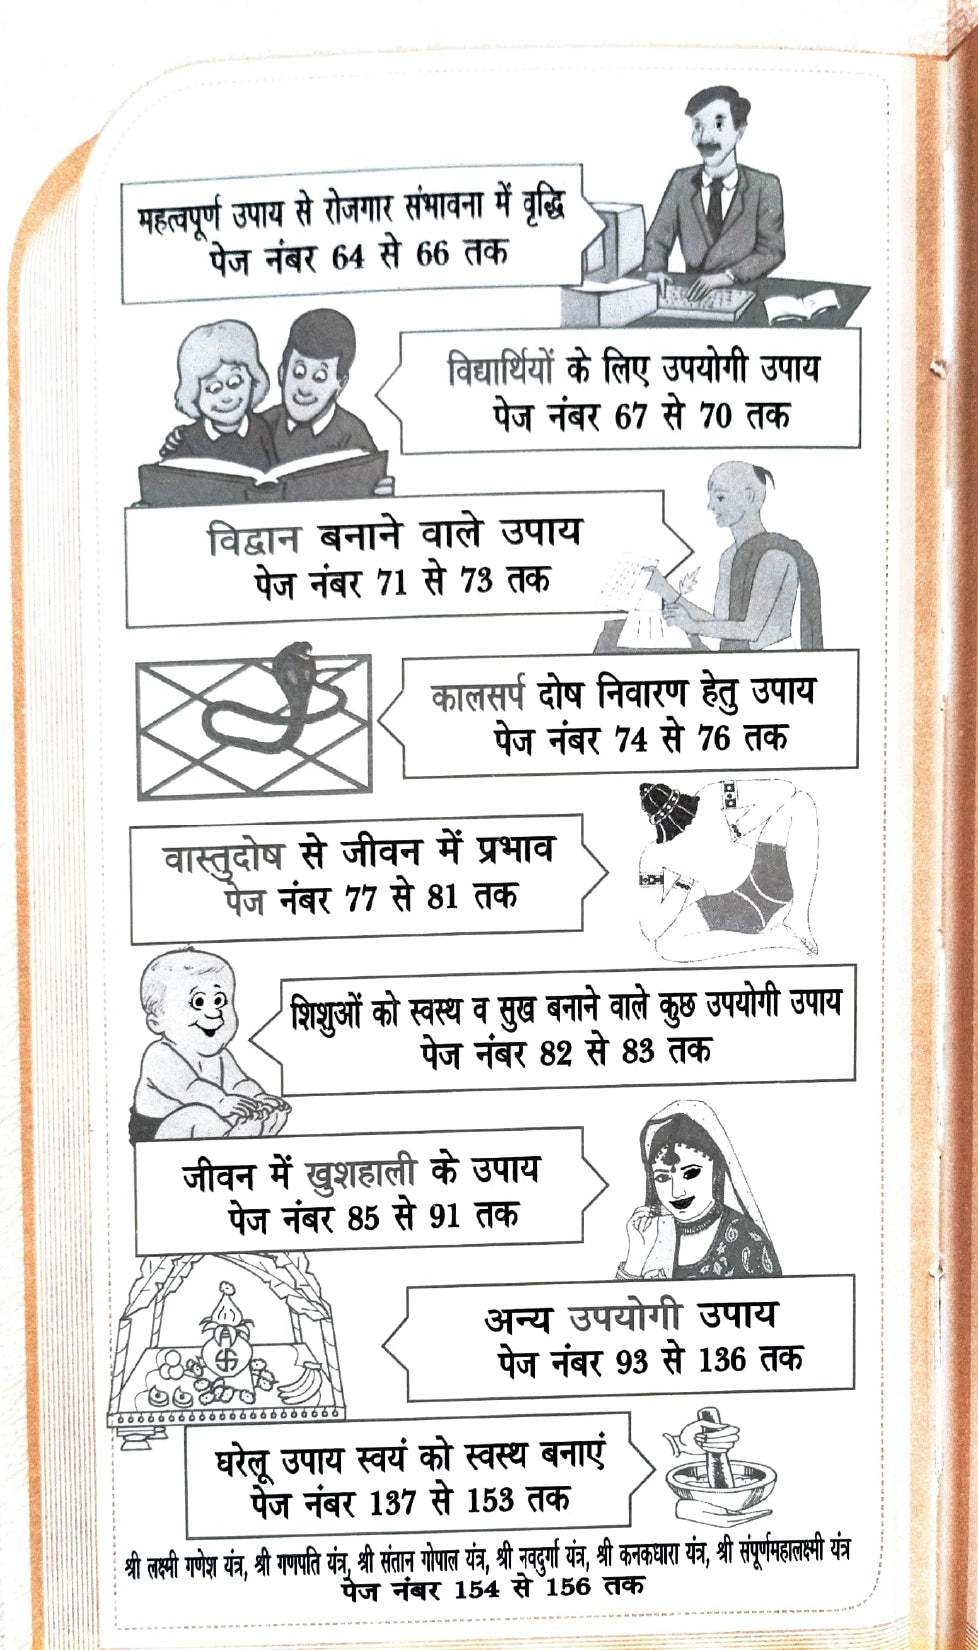 महत्वपूर्ण उपाय से रोजगार संभावना में वृद्धि
पेज नंबर 64 से 66 तक
विद्यार्थियों के लिए उपयोगी उपाय
पेज नंबर 67 से 70 तक
विद्वान बनाने वाले उपाय
पेज नंबर 71 से 73 तक
कालसर्प दोष निवारण हेतु उपाय
पेज नंबर 74 से 76 तक
वास्तुदोष से जीवन में प्रभाव
पेज नंबर 77 से 81 तक
शिशुओं को स्वस्थ व सुख बनाने वाले कुछ उपयोगी उपाय
पेज नंबर 82 से 83 तक
जीवन में खुशहाली के उपाय
पेज नंबर 85 से 91 तक
अन्य उपयोगी उपाय
पेज नंबर 93 से 136 तक
घरेलू उपाय स्वयं को स्वस्थ बनाएं
पेज नंबर 137 से 153 तक
श्री लक्ष्मी गणेश यंत्र, श्री गणपति यंत्र, श्री संतान गोपाल यंत्र, श्री नवदुर्गा यंत्र, श्री कनकधारा यंत्र, श्री संपूर्णमहालक्ष्मी यंत्र
पेज नंबर 154 से 156 तक